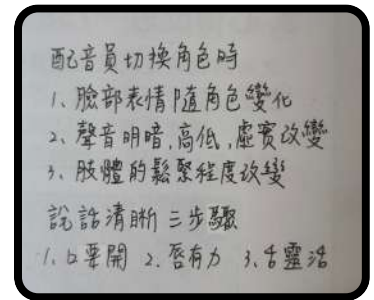 配音員切換角色時
1、臉部表情隨角色變化
2、聲音明暗,高低,虛实改變
3、肢體的鬆緊程度改變
說話清晰三步驟
1、口要開 2、唇有力 3、舌靈活